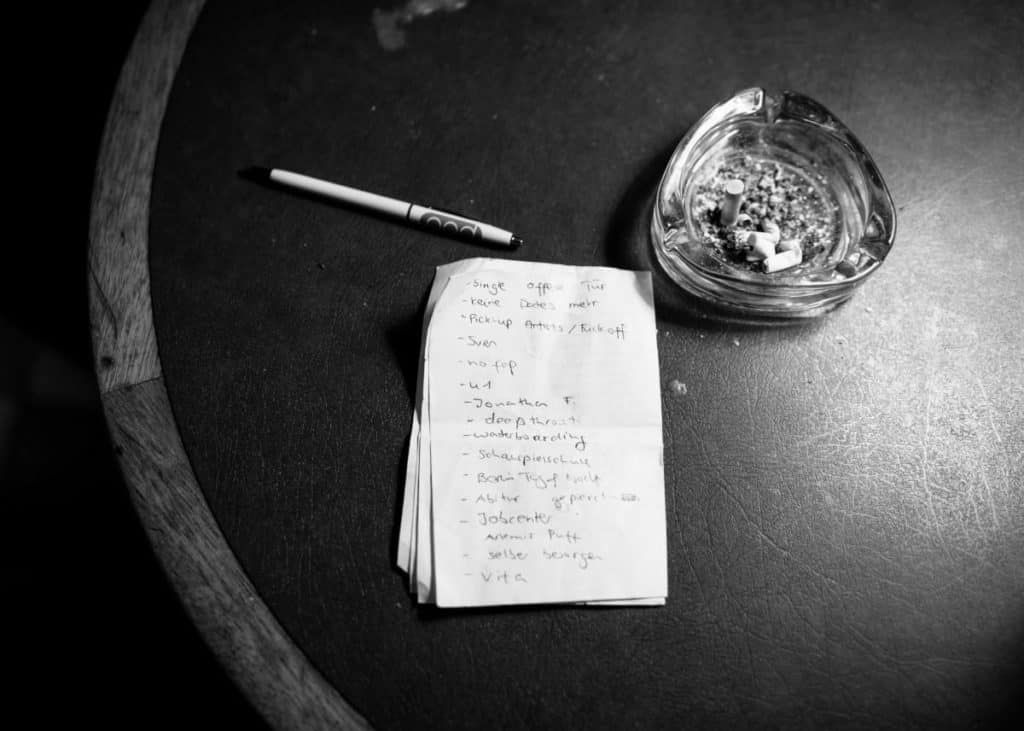 - Single offene Tür
- keine Dates mehr
- Pick-up Artists / Fuck off
- Sven
- no fap
- U1
- Jonathan F.
- deepthroat
- waterboarding
- Schauspielschule
- Berlin Tag & Nacht
- Abitur
- Jobcenter
Artemis Puff
- selber besorgen
- Vita